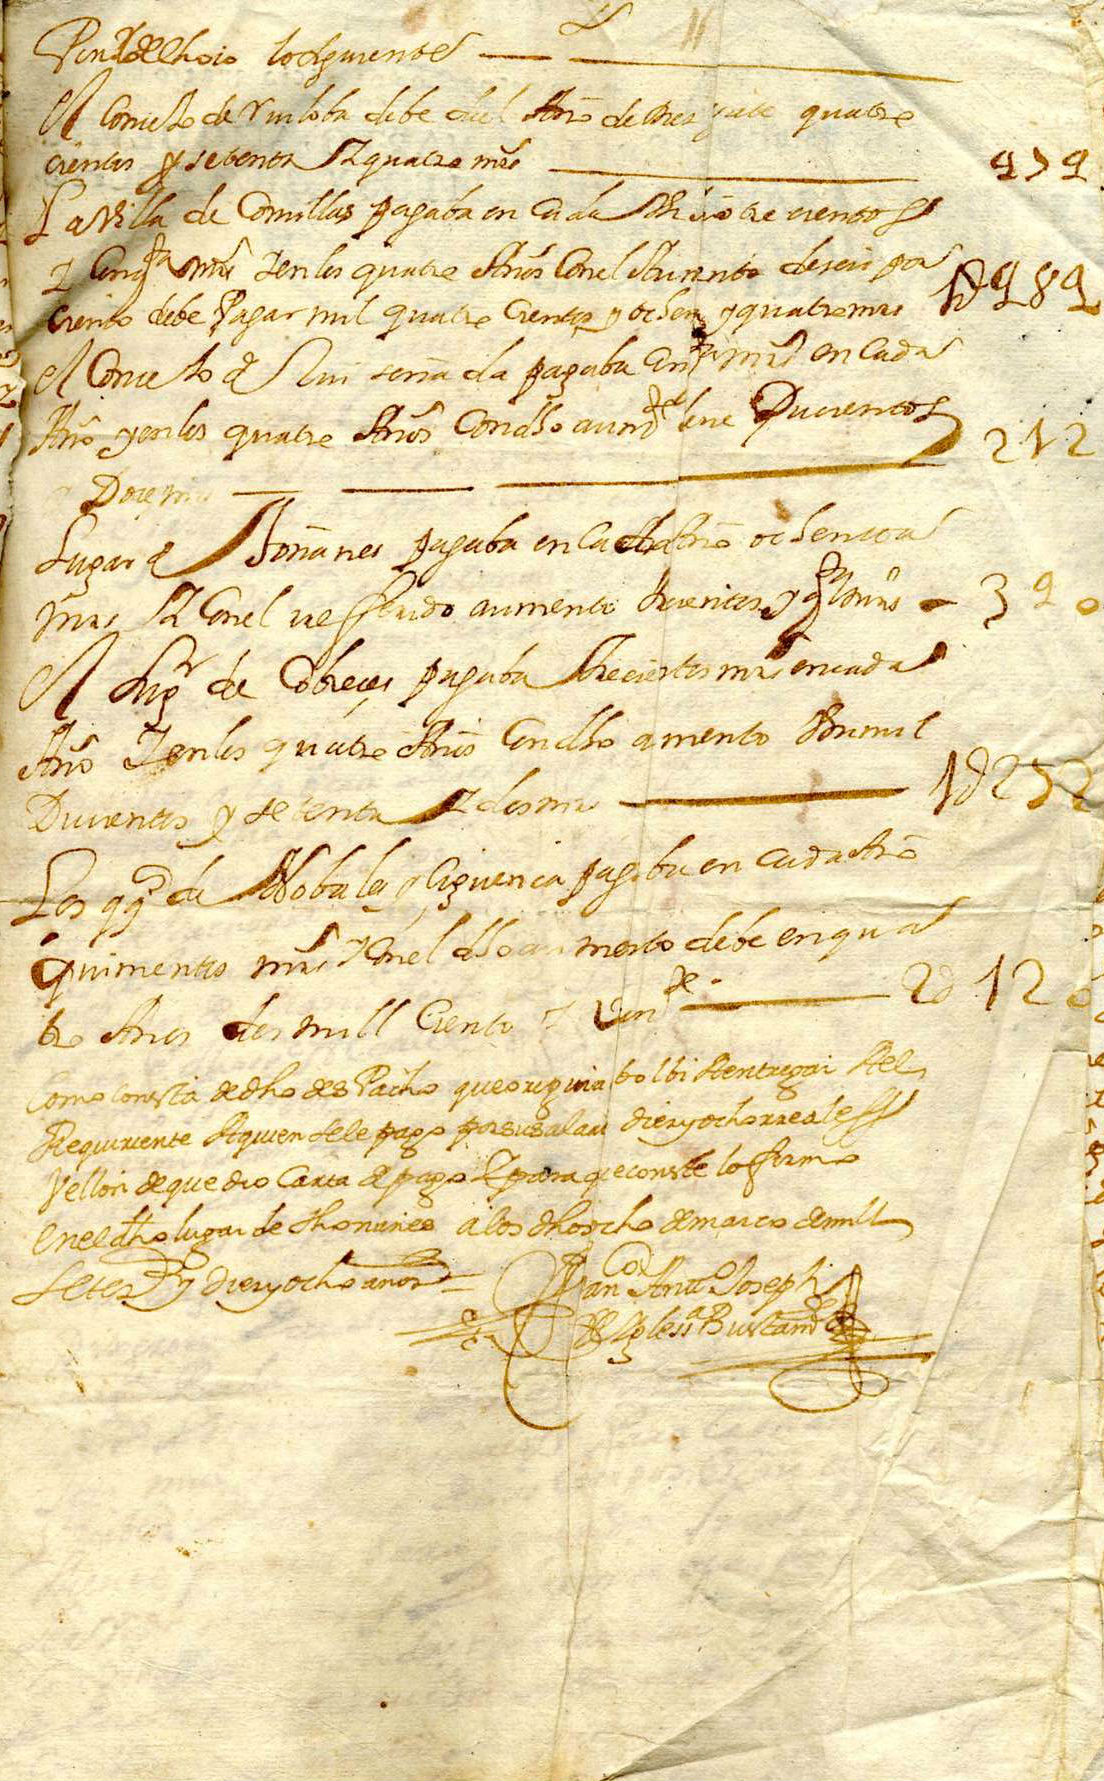 lo siguiente
El Concejo de Ruiloba debe del Año de diez y siete quatro
cientos y setenta y quatro mrs 474
La Villa de Comillas pagaba en Cada Año trecientos
y Cinqta mrs y en los quatro Años Con el Aumento de seis por
Ciento debe Pagar mil quatro Cientos y ochenta y quatro mrs 1U484
El Concejo de Ruiseñada pagaba Cinqta mrs en Cada
Año y en los quatro Años Con dho aumto debe Ducientos
y Doce mrs 212
Lugar de Toñanes pagaba en Cada Año ochenta
mrs y Con el refferido aumento trecientos y qta mrs 340
El Lugr de Cobreces pagaba trecientos mrs en cada
Año y en los quatro Años Con dho aumento mil
Ducientos y setenta y dos mrs 1U272
Los de Nobales y Ciguenca pagaba en Cada Año
quinientos mrs y Con el dho aumento debe en qua
tro Años dos mill Ciento y Veinte 2U120
Como consta de dho despacho que original bolbi A entregar Al
Requiriente A quien se le pago por su salario diez y ocho rreales
Vellon de que dio Carta de pago y para que conste lo firmo
En el dho lugar de thoñanes a los dhos ocho de março de mill
setezs y diez y ocho años
Juan Anto Joseph
de Iglesia Bustamte